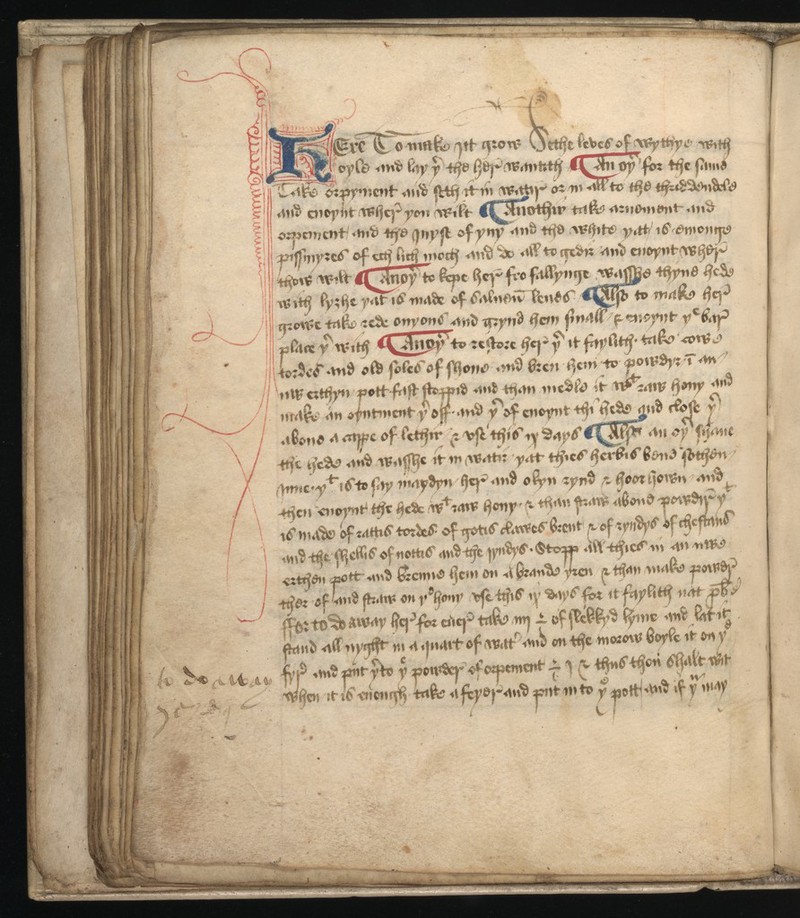 Here To make it grow Sethe leves of wythye with
oyle and lay yͬ the herͬ wantith An oyͬ for the same
Take orpyment and seth it in watir or in all to the thriddendele
and enoynt wherͬ you wilt Anothir take arnement and
orpement and the Juyse of yuy and the white yat is emonge
pissmyres of ech lich moch and do all to gedir and enoynt wherͬ
thow wilt Anoyͬ to kepe herͬ fro fallynge wasshe thyne hede
with lyzhe yat is made of leves Also to make herͬ
growe take rede onyons and grynd hem small & enoynt yͤ bar
place yͬ with Anoyͬ to restore herͬ yͬ it faylith take cowe
tordes and old soles of shone and bren hem to powdyr in an
nw erthyn pott fast stoppid and than medle it wͭ raw hony and
make an oyntment yͬ off and yͬ of enoynt thi hede and close yͬ
aboue a cappe of lethir & vse this ix days Also an oyͬ shaue
the hede and wasshe it in watir yat thies herbis bene sothen
Inne yͭ is to say maydyn herͬ and okyn rynd & hoor hown and
then enoynt the hede wͭ raw hony & than straw aboue powdirͬ yͭ
is made of rattis tordes of gotis clawes brent & of ryndys of chestans
and the shellis of nottis and the ryndys Stopp all thies in an nwe
erthen pott and brenne hem on a brande yren & than make powdirͬ
ther of and straw on yͤ hony vse this ix days for it faylith nat
ffor to do away herͬ for euerͬ take iiij of slekkyd lyme and lat it
stand all nyght in a quart of watͬ and on the morow boyle it on yͤ
fyrͬ and put yͬto yͤ powder of orpement j & thus thou shalt wit
when it is enough take a feyer and put in to yͤ pott and if yͧ may
to do away